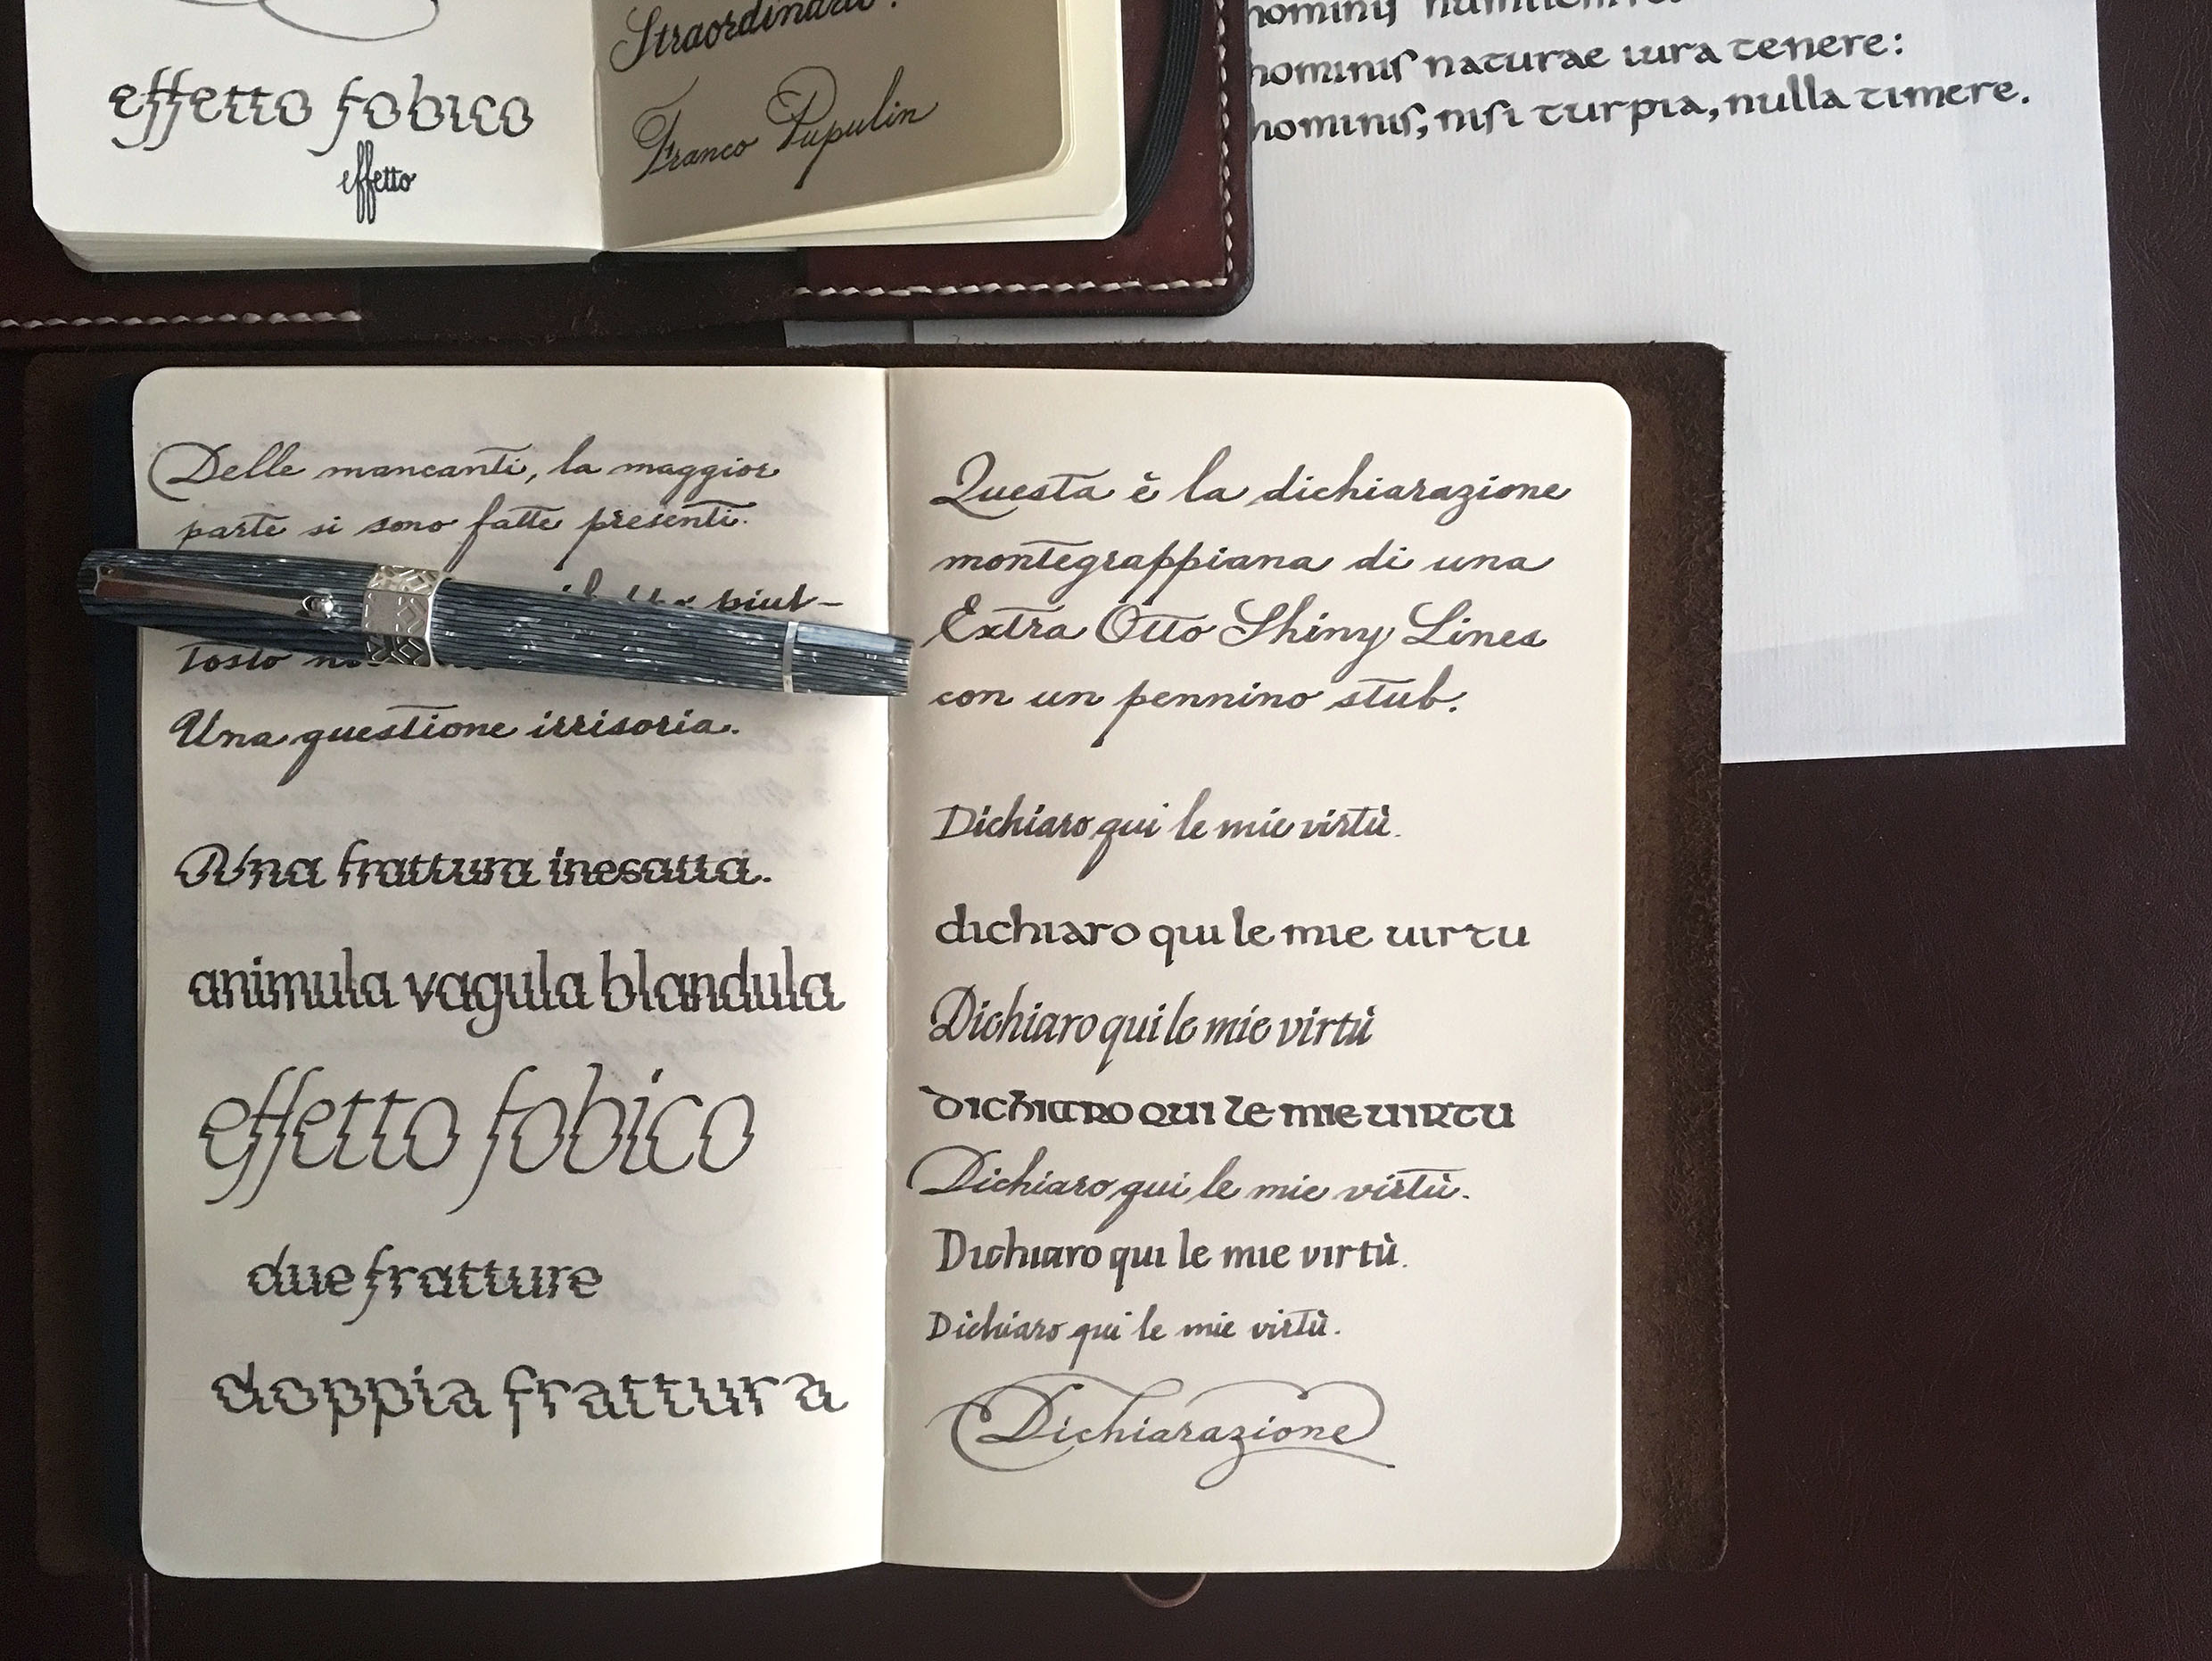 effetto fobico
effetto
Straordinario!
Franco Pupulin
hominis
hominis naturae iura tenere:
hominis, nisi turpia, nulla timere.
Delle mancanti, la maggior
parte si sono fatte presenti.
piut-
tosto
Una questione irrisoria.
Una frattura inesatta.
animula vagula blandula
effetto fobico
due fratture
doppia frattura
Questa è la dichiarazione
montegrappiana di una
Extra Otto Shiny Lines
con un pennino stub.
Dichiaro qui le mie virtù.
dichiaro qui le mie uirtu
Dichiaro qui le mie virtù
dichiaro qui le mie uirtu
Dichiaro qui le mie virtù.
Dichiaro qui le mie virtù.
Dichiaro qui le mie virtù.
Dichiarazione